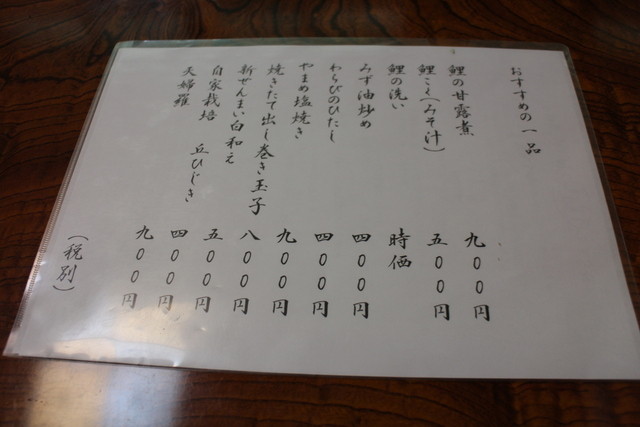 おすすめの一品
鯉の甘露煮 九〇〇円
鯉こく(みそ汁) 五〇〇円
鯉の洗い 時価
みず油炒め 四〇〇円
わらびのひたし 四〇〇円
やまめ塩焼き 九〇〇円
焼きたて出し巻き玉子 八〇〇円
新ぜんまい白和え 五〇〇円
自家栽培 丘ひじき 四〇〇円
天婦羅 九〇〇円
(税別)